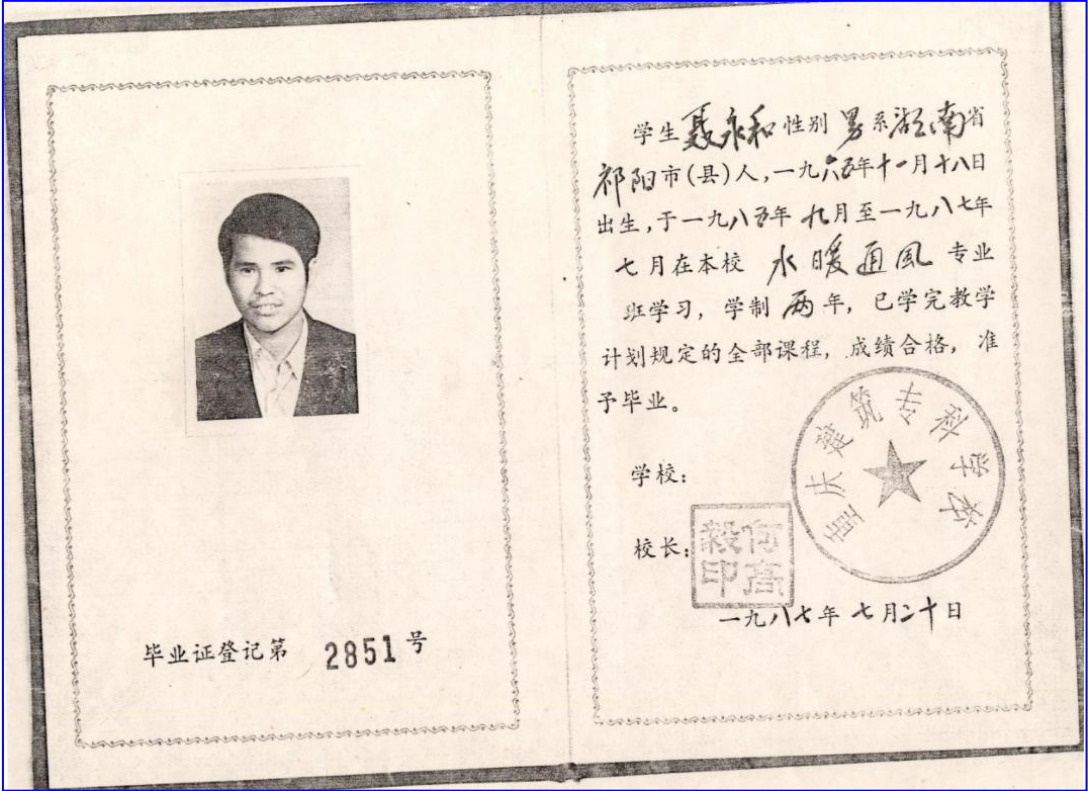 毕业证登记第 2851 号
学生聂永和性别男系湖南省
祁阳市(县)人,一九六五年十一月十八日
出生,于一九八五年九月至一九八七年
七月在本校 水暖通風 专业
班学习,学制两年,已学完教学
计划规定的全部课程,成绩合格,准
予毕业。
重庆建筑专科学校
学校:
校长:
何高毅印
一九八七年七月二十日